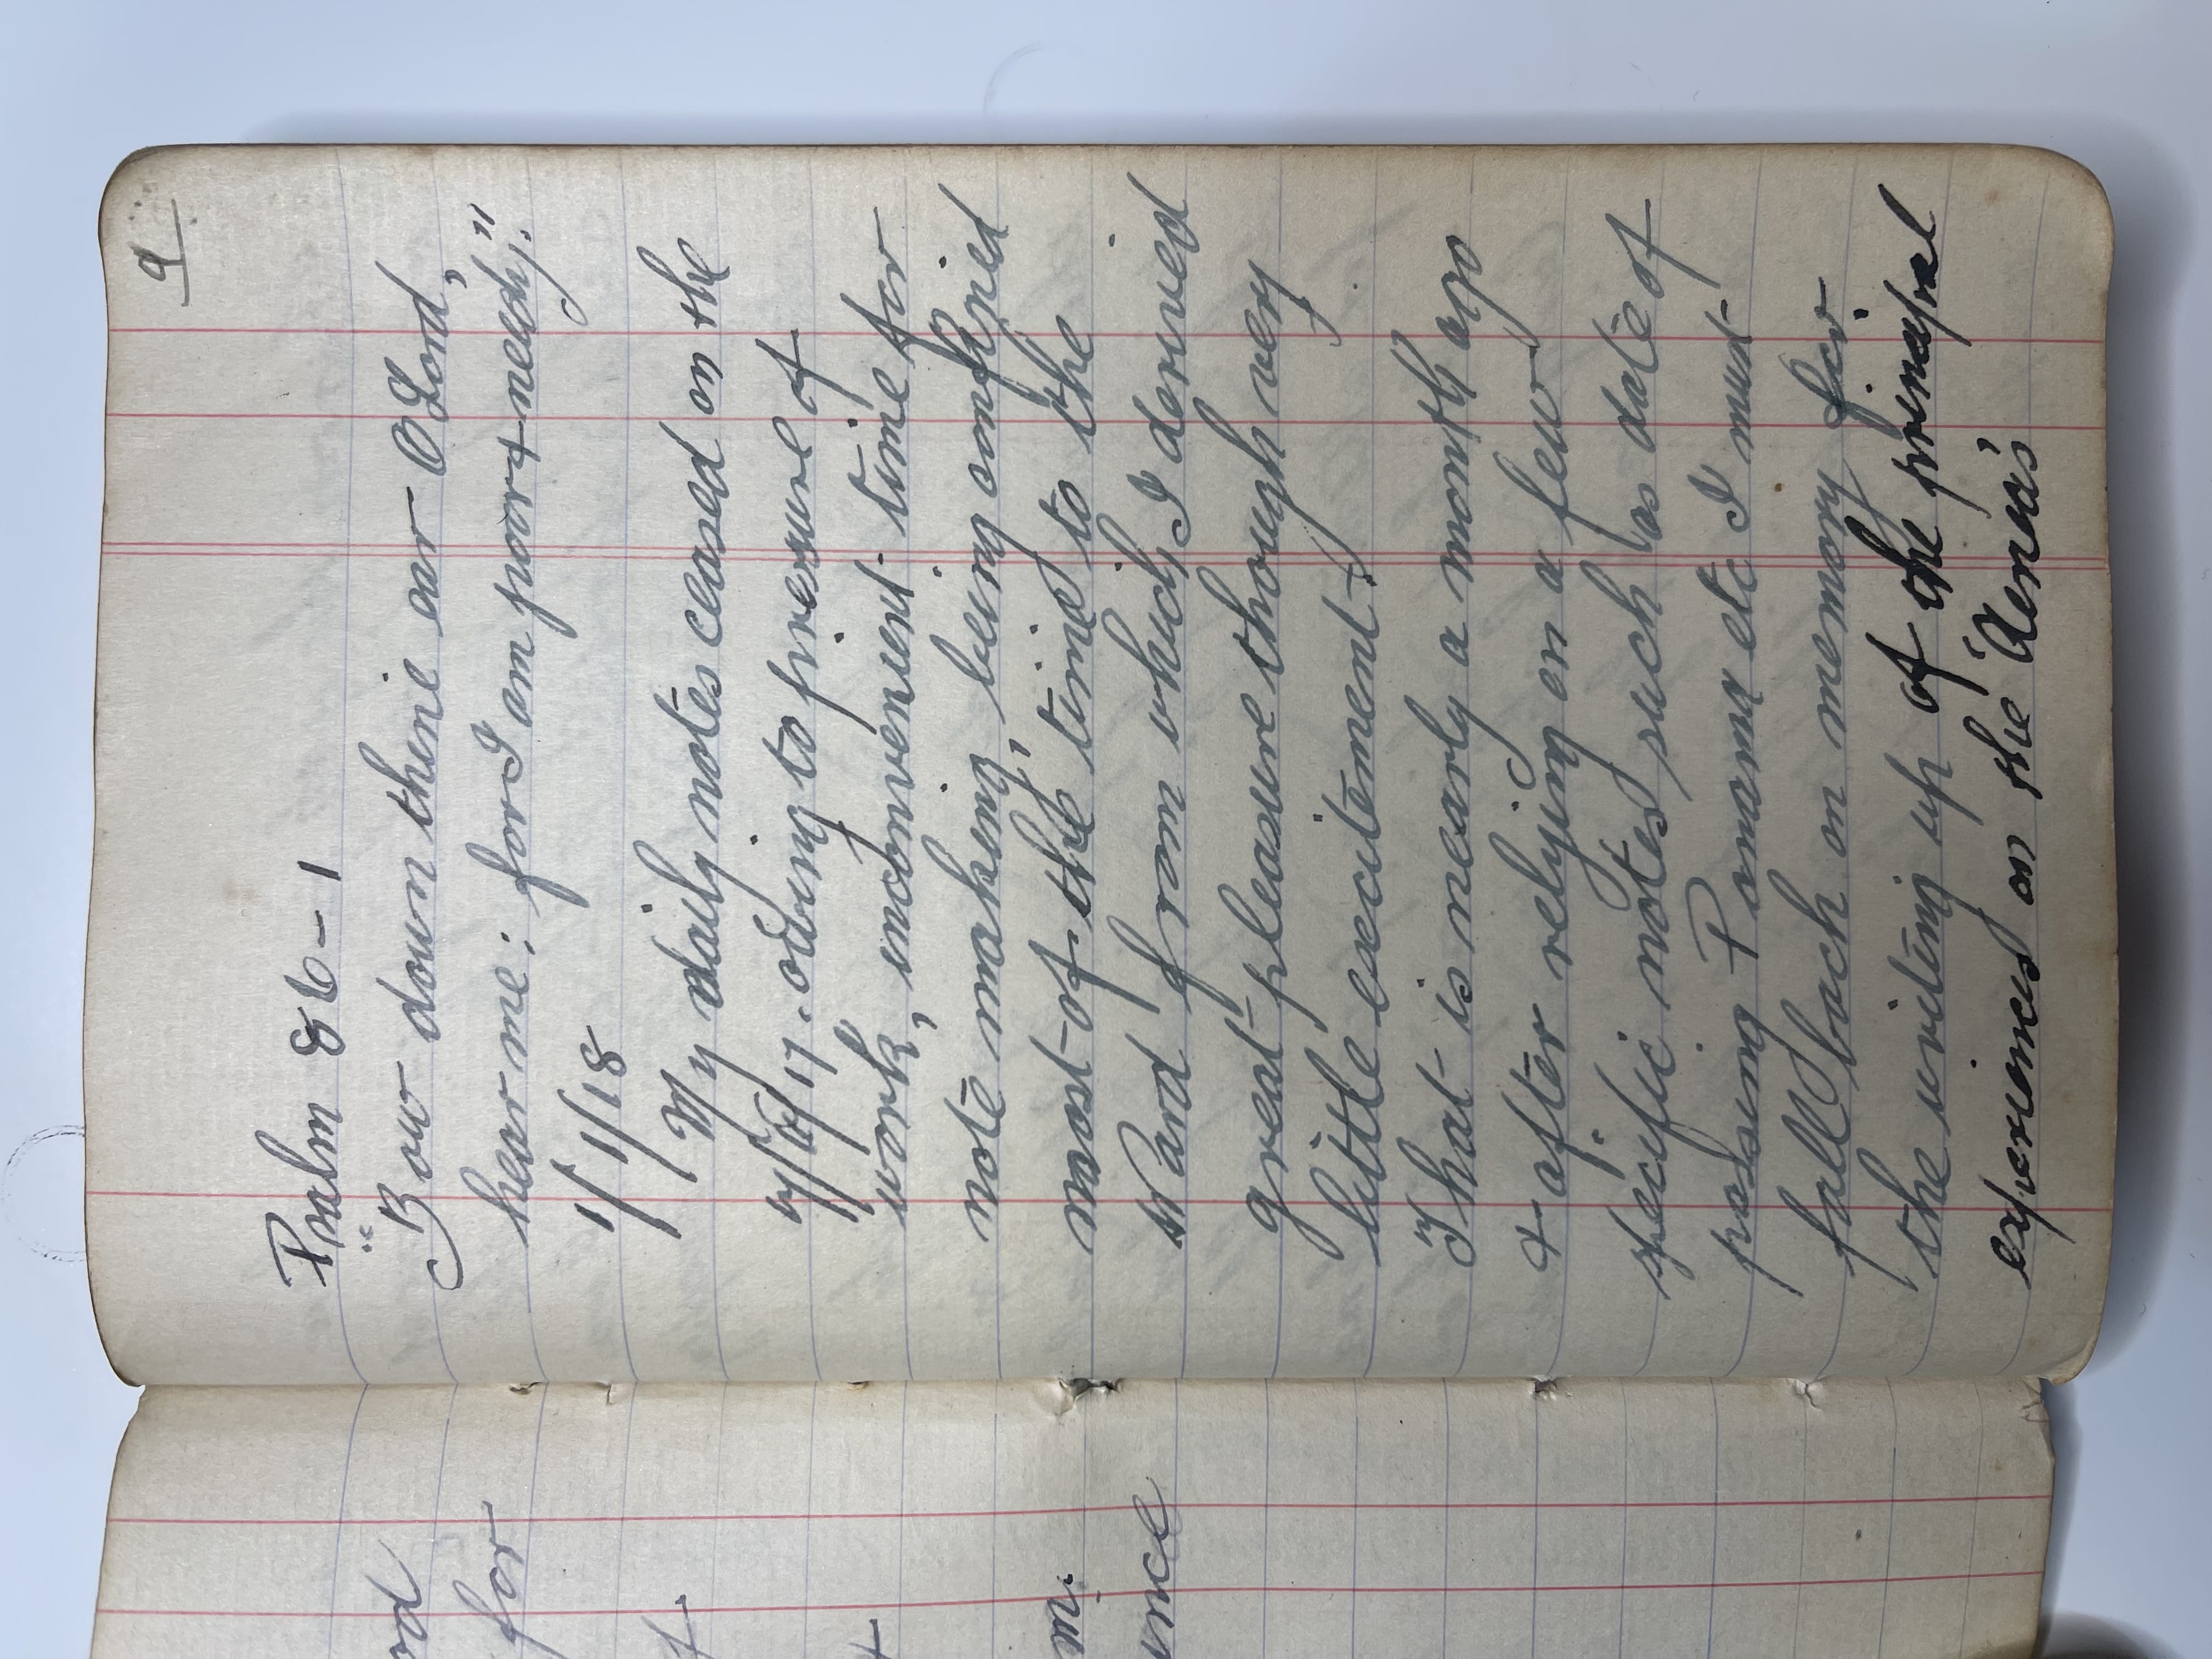 9
Psalm 86-1
"Bow down thine ear O Lord,
hear me: for I am poor & needy."
1/1/18
My daily notes ceased on the
7/8/17. owing to pressure of
work, inconvenient time for
note making, being confined
most of the time to the
Ward from which I derived
great pleasure though very
little excitement.
That is nearly a month ago
& after relying on a few
specific notes such as date of
passing Panama etc I must
fall back on memory for
the writing up of the principal
experiences on the 'Aeneas'
rd
for
f
t
m
ince